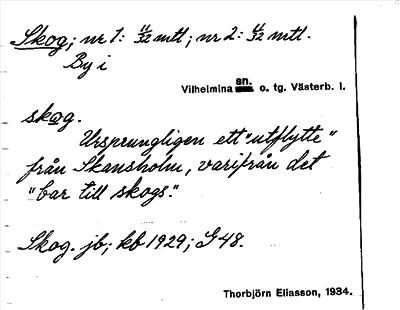 Skog; nr 1: 11/32 mtl; nr 2: 11/32 mtl.
By i
Vilhelmina sn. o. tg. Västerb. l.
skog.
Ursprungligen ett "utflytte"
från Skansholm, varifrån det
"bar till skogs."
Skog. jb; kb 1929; G 48.
Thorbjörn Eliasson, 1934.